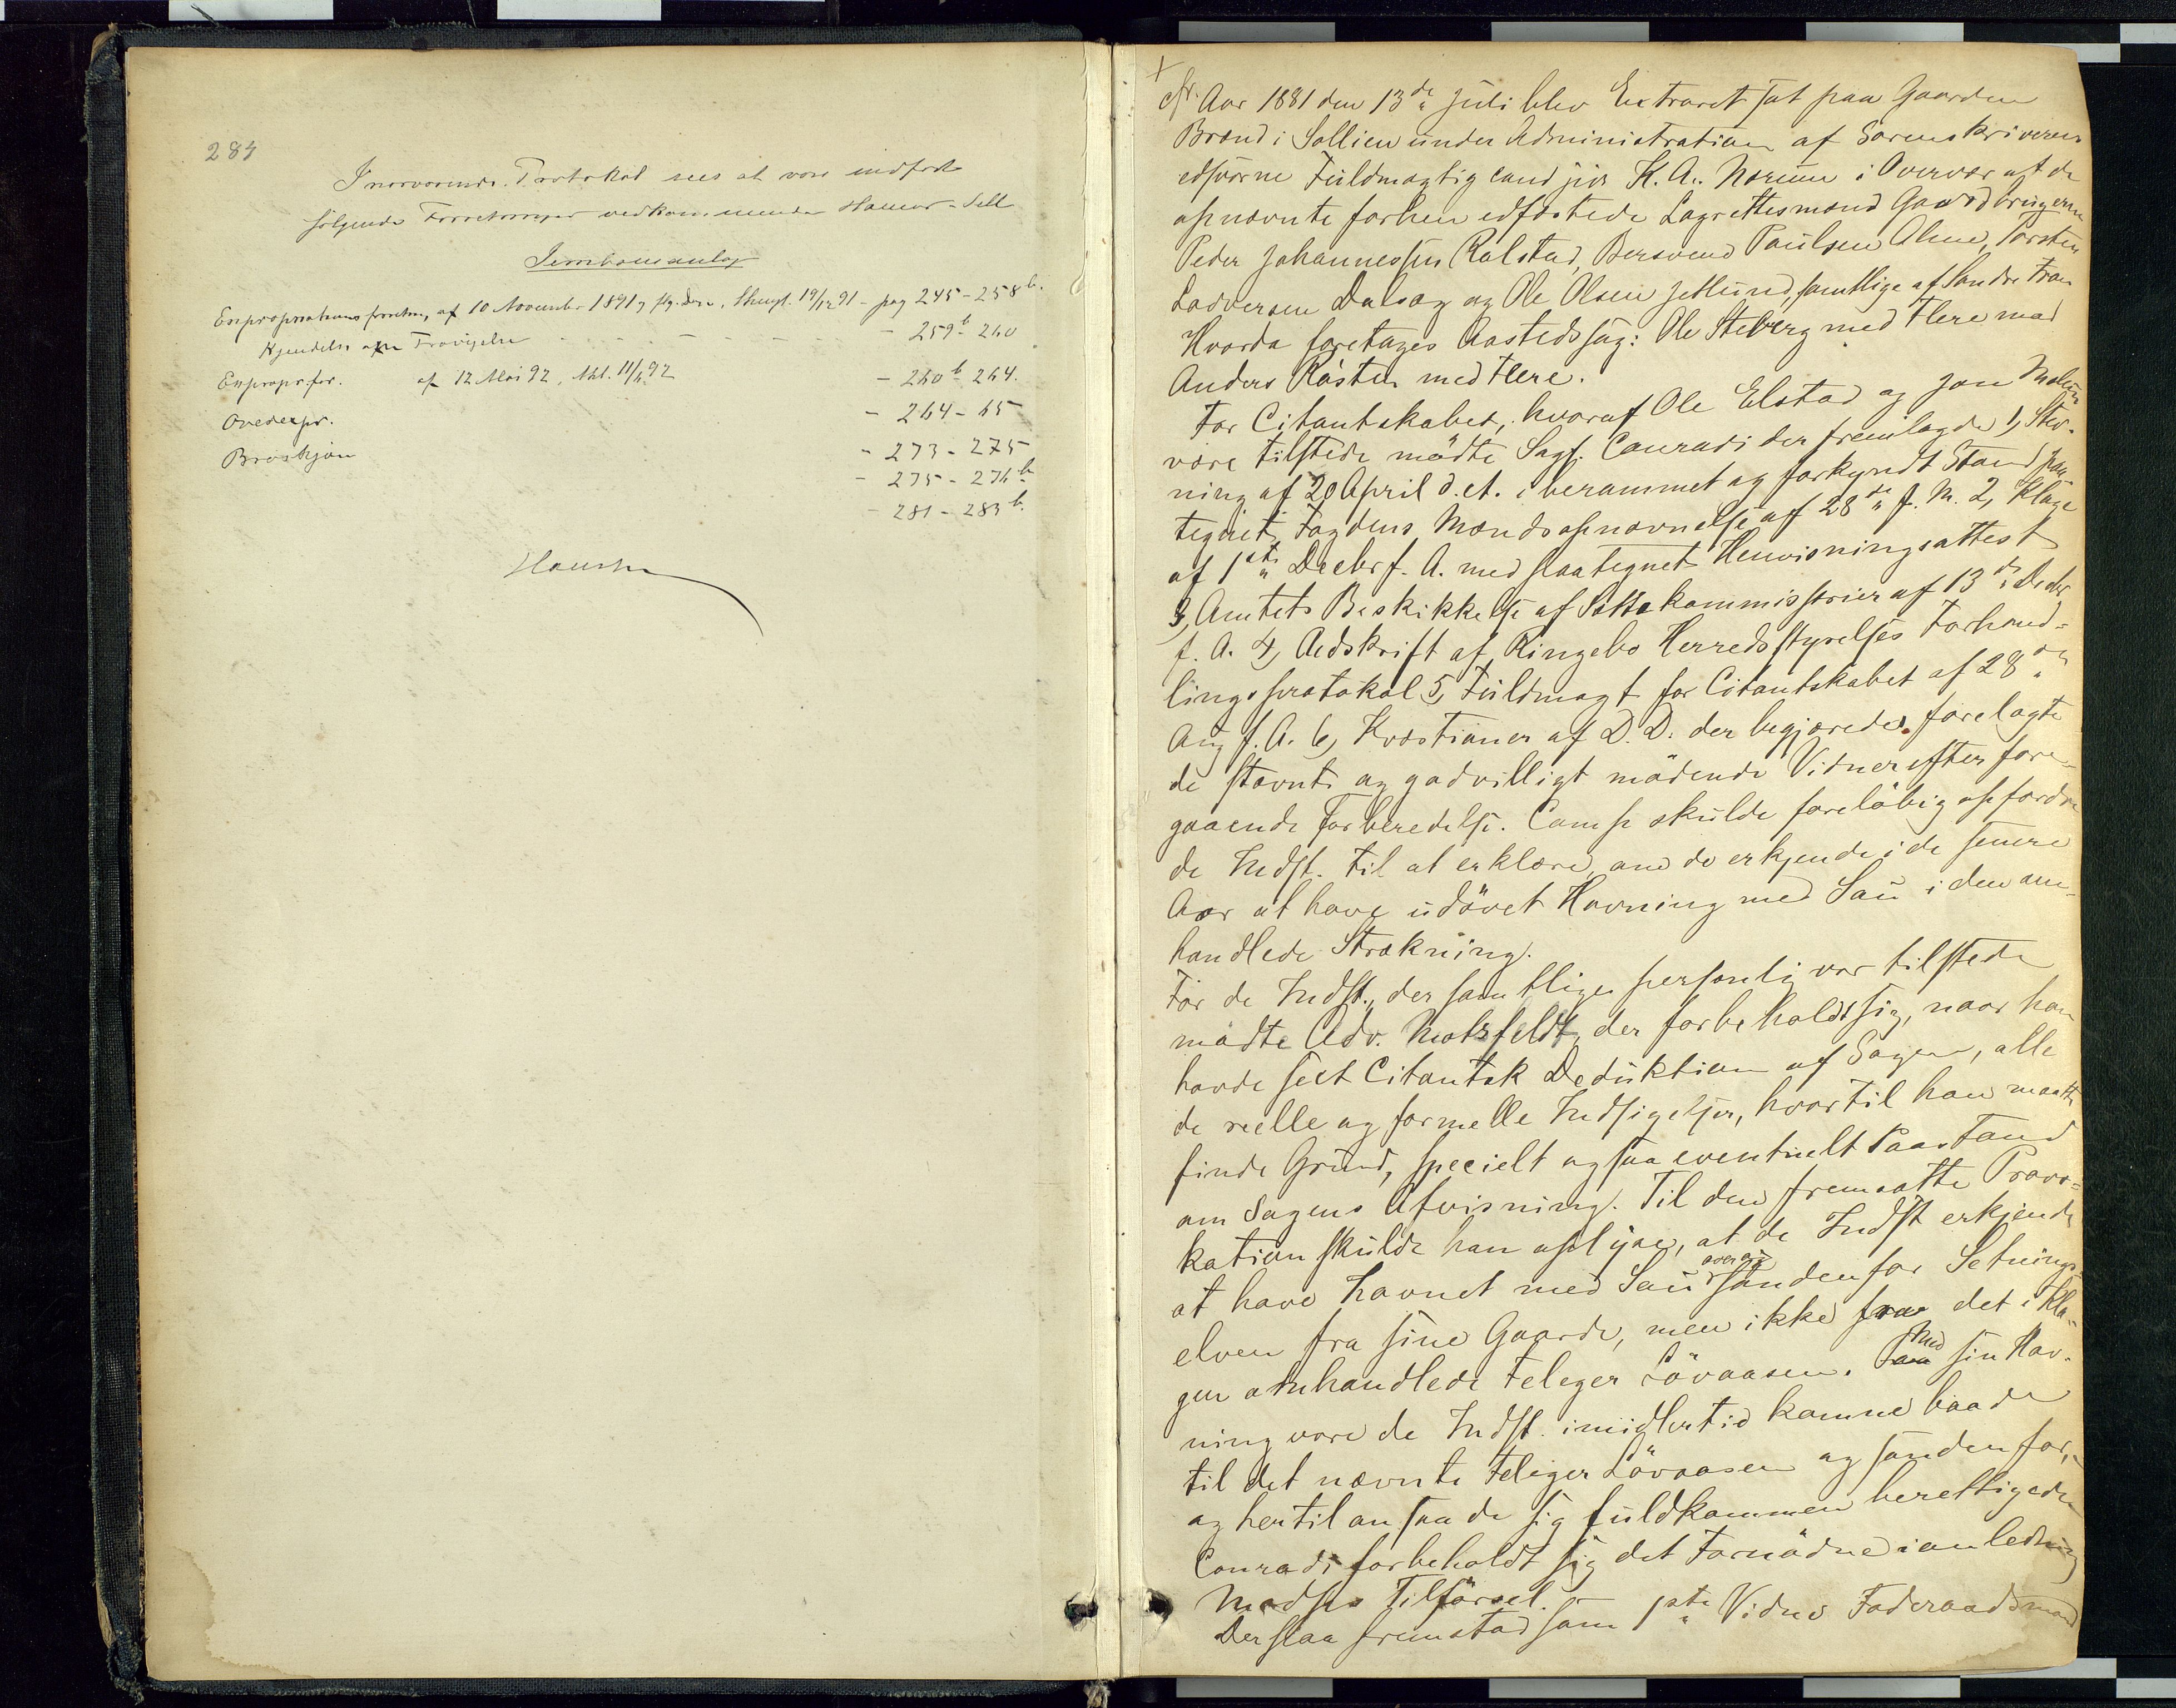 284
I nærværende Protokol sees at være indført
følgende Forretninger vedkommende Hamar-Sell
Jernbaneanlæg
Expropriationsforretn. af 10 November 1891, flg. Dage, Thingl. 19/12 91 - pag 245-258 b.
Kjendelse om Fravigelse - 259 b - 260
Expropr. for. af 12 Mai 92, 11/6 92 - 260 b - 264.
Overexpr. - 264-65
Broskjøn - 273-275
- 275-276 b
- 281-283 b.
+
Aar 1881 den 13de Juli blev Extraret sat paa Gaarden
Brænd i Sollien under Administration af Sorenskriverens
edsvorne Fuldmægtig cand jur K. A. Norum i Overvær af de
opnævnte forhen edfæstede Lagrettesmænd Gaardbrugerne
Peder Johannessen Kolstad, Bersvend Paulsen Alme, Torsten
Ladversen Dalsæg og Ole Olsen Jetlund, samtlige af Søndre Fron
Hvorda foretages Aastedssag: Ole Steberg med Flere mod
Anders Råsten med Flere.
For Citantskabet, hvoraf Ole Elstad og Jon
vare tilstede mødte Sagf. Conradi der fremlagde 1, Stev-
ning af 20 April d. A. i berammet og forkyndt Stand paa
tegnet Fogdens Mændsopnævnelse af 28de f. M. 2, Klage
af 1ste Decbr f. A. med paategnet Henvisningsattest
3, Amtets Beskikkelse af Sættekommissorier af 13de Decbr
f. A. 4, Udskrift af Ringebo Herredsstyrelses Forhand-
lingsprotokol 5, Fuldmagt for Citantskabet af 28de
Aug f. A. 6, Kvæstioner af D. D. der begjæredes forelagte
de stevnte og godvilligt mødende Vidner efter fore-
gaaende Forberedelse. Comp skulde foreløbig opfordre
de Indst. til at erklære, om de erkjende i de senere
Aar at have udøvet Havning med Sau i den om-
handlede Strækning.
For de Indst., der samtlige personlig var tilstede
mødte Adv. Motzfeldt, der forbeholdt sig, naar han
havde seet Citantsk Deduktion af Sagen, alle
de reelle og formelle Indsigelser, hvortil han maatte
finde Grund, specielt ogsaa eventuelt Paastand
om Sagens Afvisning. Til den fremsatte Provo-
kation skulde han oplyse, at de Indst erkjende
at have havnet med Sau søndenfor Setnings-
elven fra sine Gaarde, men ikke fra det i Kla-
gen omhandlede Feleger Løvaasen. Med sin Hav-
ning vare de Indst. imidlertid komne baade
til det nævnte Feleger Løvaasen og søndenfor,
og hertil ansaa de sig fuldkommen berettigede
Conradi forbeholdt sig det Fornødne i anledning
Modpts Tilførsel.
Derpaa fremstod som 1ste Vidne Føderaadsmand